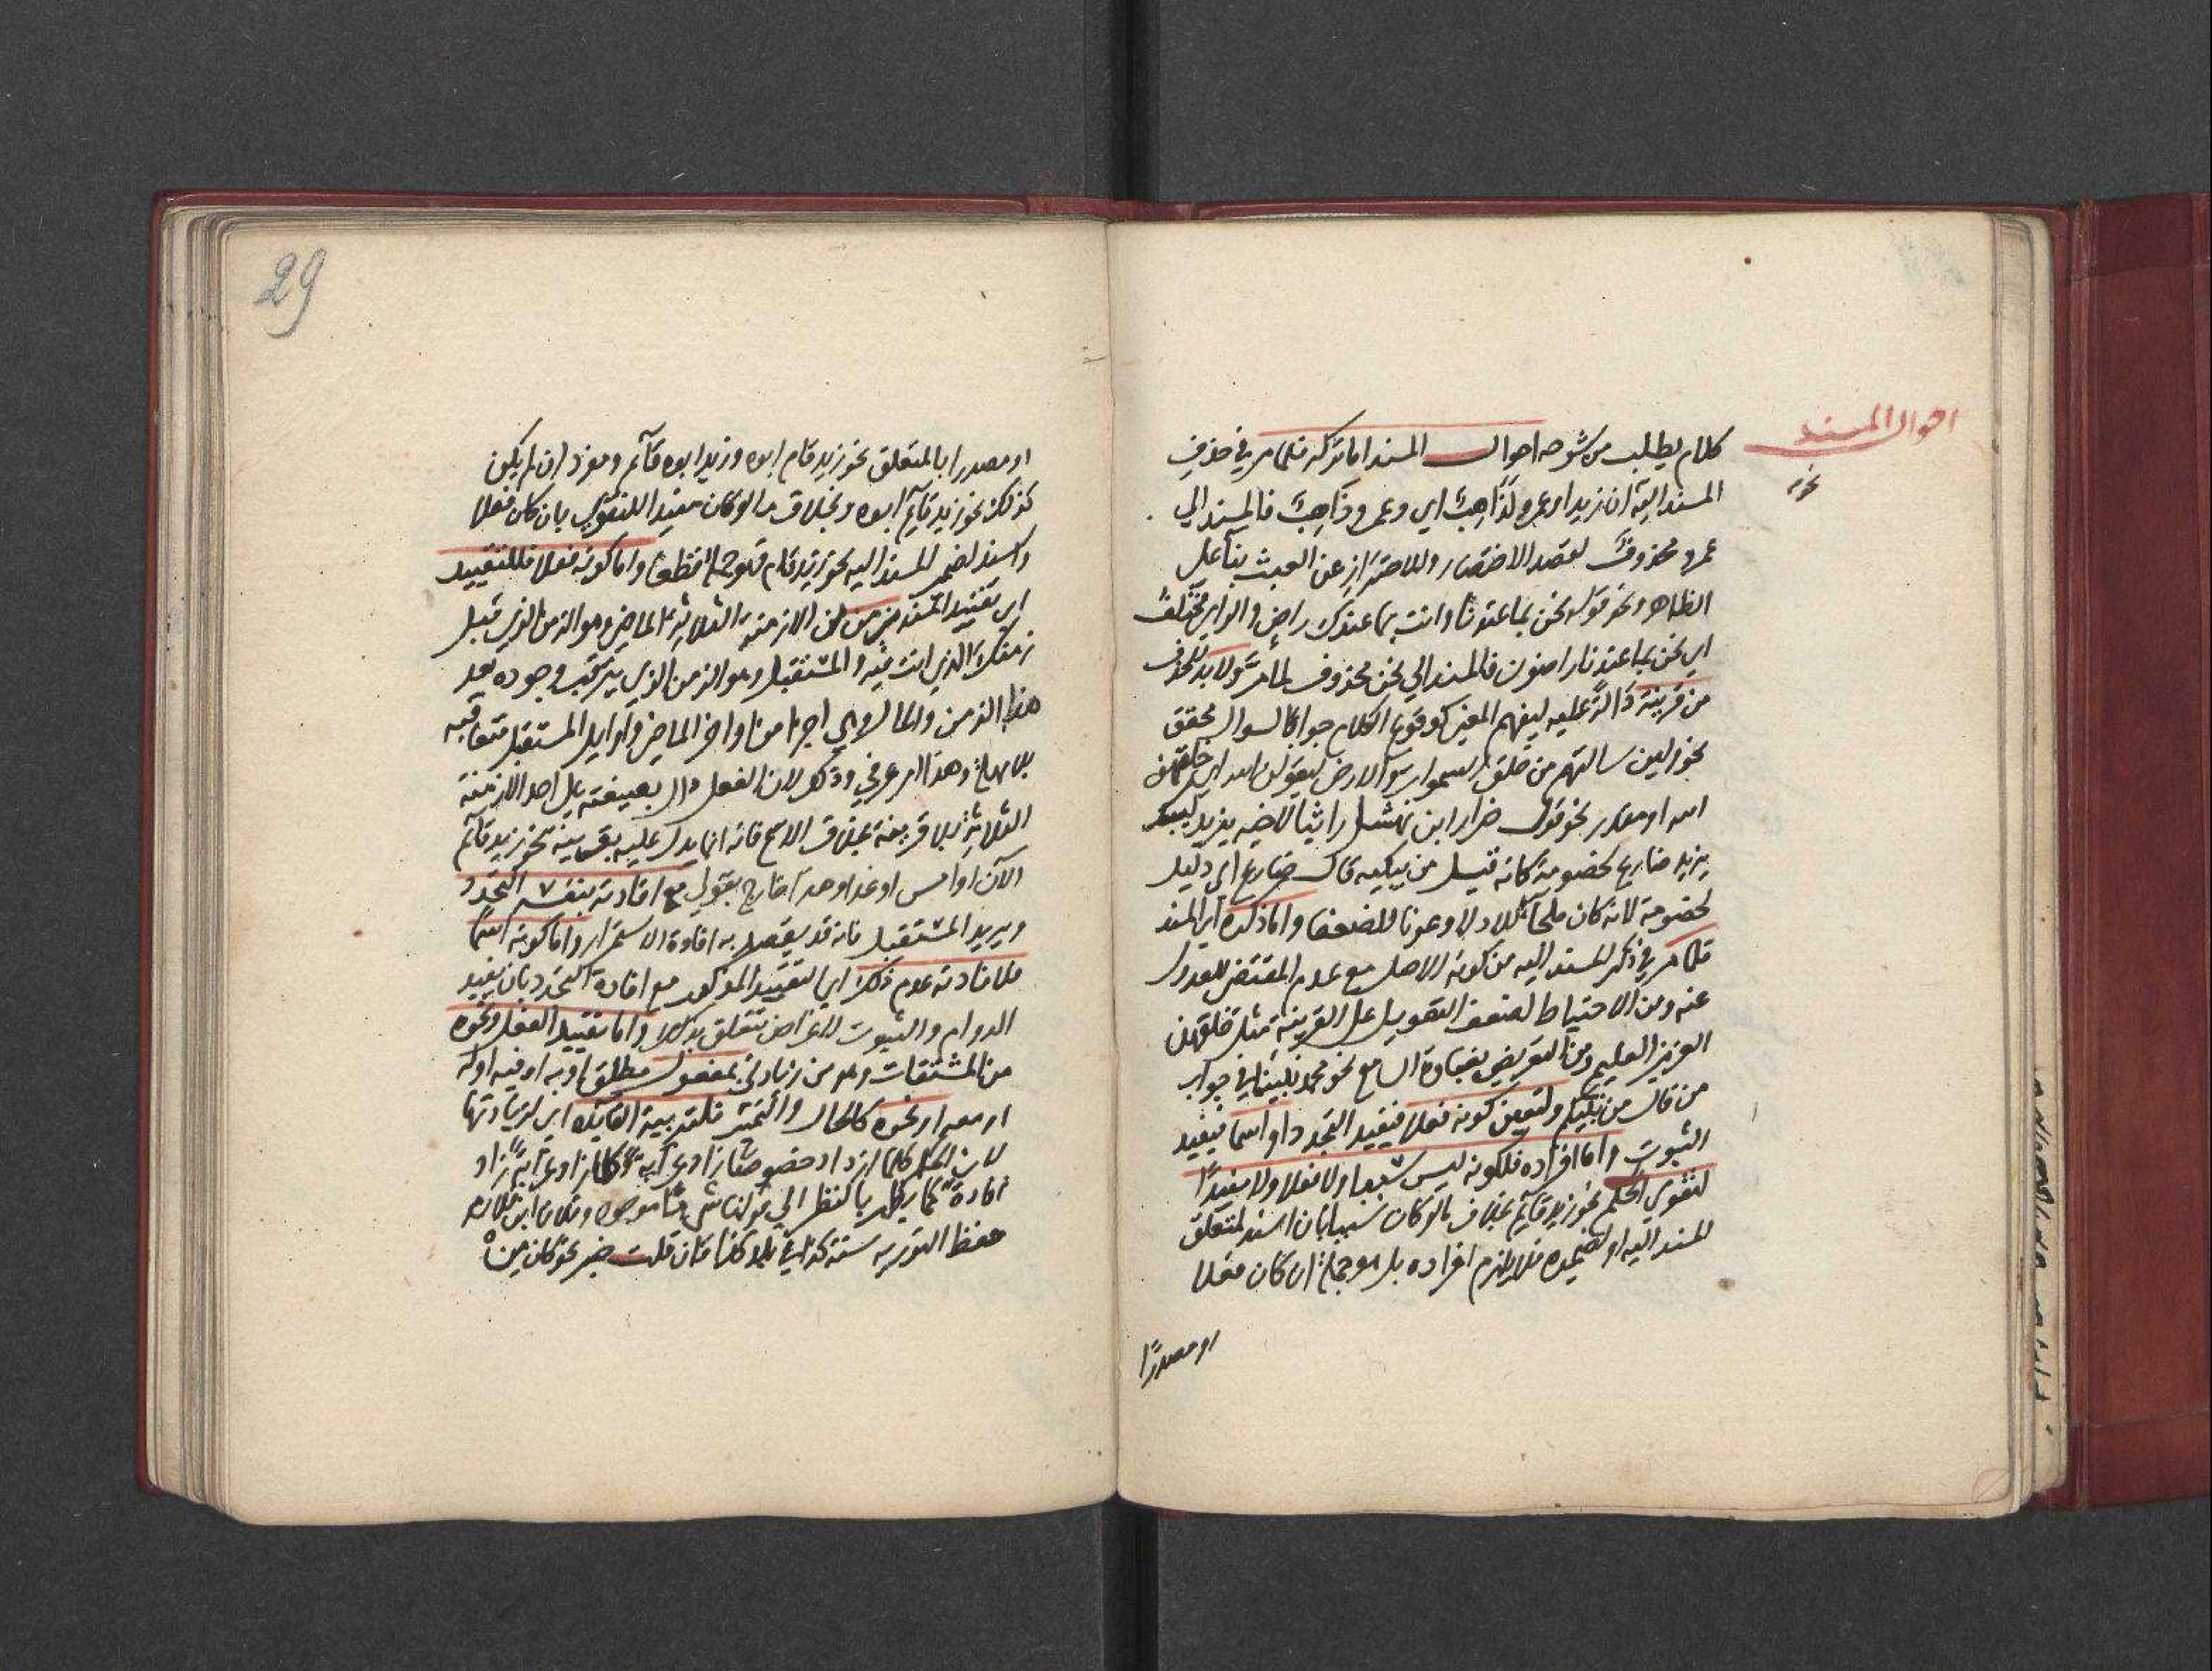 احوال المسند
نحو
كلام يطلب من شرحه احوال المسند اما تركه فلما مر في حذف
المسند اليه ان زيدا وعمرو لذاهب اي وعمرو ذاهب فالمسند الي
عمرو محذوف لقصد الاختصار والاحتراز عن العبث بنا على
الظاهر ونحو قوله نحن بما عندنا وانت بما عندك راض والراي مختلف
اي نحن بما عندنا راضون فالمسند الي نحن محذوف لما مر ولا بد للحذف
من قرينة دالة عليه ليفهم المعنى كوقوع الكلام جوابا لسوال محقق
نحو ولين سالتهم من خلق السموات والارض ليقولن الله اي خلقهن
الله او مقدر نحو قول ضرار ابن نهشل راثيا لاخيه يزيد ليبك
يزيد ضارع لخصومة كانه قيل من يبكيه قال ضارع اي ذليل
لخصومة لانه كان ملجا للاذلا وعونا للضعفا واما ذكره اي المسند
فلما مر في ذكر المسند اليه من كونه الاصل مع عدم المقتضى للعدول
عنه ومن الاحتياط لضعف التعويل على القرينة مثل خلقهن
العزيز العليم ومن التعريض بغباوة السامع نحو محمد نبينا في جواب
من قال من نبيكم ولتعين كونه فعلا فيفيد التجدد او اسما فيفيد
الثبوت واما افراده فلكونه ليس سببيا ولا فعلا ولا مفيدا
لتقوي الحكم نحو زيد قايم بخلاف ما لو كان سببيا بان اسند لمتعلق
المسند اليه او لضميره فلا يلزم افراده بل هو جملة ان كان فعلا
او مصدرا
29
او مصدرا بالمتعلق نحو زيد قام ابوه وزيد ابوه قايم ومفرد ان لم يكن
كذلك نحو زيد قايم ابوه وبخلاف ما لو كان مفيدا للتقوي بان كان فعلا
واسند لضمير المسند اليه نحو زيد قام فهو جملة قطعا واما كونه فعلا فللتقييد
اي تقييد المسند بزمن من الازمنة الثلاثة الماضي وهو الزمن الذي قبل
زمنك الذي انت فيه والمستقبل وهو الزمن الذي يترقب وجوده بعد
هذا الزمن والحال وهي اجزا من اواخر الماضي واوايل المستقبل متعاقبه
بلا مهلة وهذا امر عرفي وذلك لان الفعل دال بصيغته على احد الازمنة
الثلاثة بلا قرينة بخلاف الاسم فانه انما يدل عليه بقرينة نحو زيد قايم
الآن او امس او غدا وهذا خارج بقولي مع افادته بنفسه التجدد
ويريد المستقبل فانه قد يقصد به افادة الاستمرار واما كونه اسما
فلافادته عدم ذلك اي التقييد المذكور مع افادة التجدد بان يفيد
الدوام والثبوت لاغراض تتعلق بذلك واما تقييد الفعل ونحوه
من المشتقات وهو من زيادتي بمفعول مطلق او به او فيه او له
او معه او نحوه كالحال والتمييز فلتربية الفايدة اي لزيادتها
لان الحكم كلما ازداد خصوصا زاد غرابة وكلما زاد غرابة زاد
افادة كما يظهر بالنظر الي قولنا شي ما موجود وفلان ابن فلان
حفظ التورية سنة كذا في بلد كذا فان قلت خبر نحو كان من